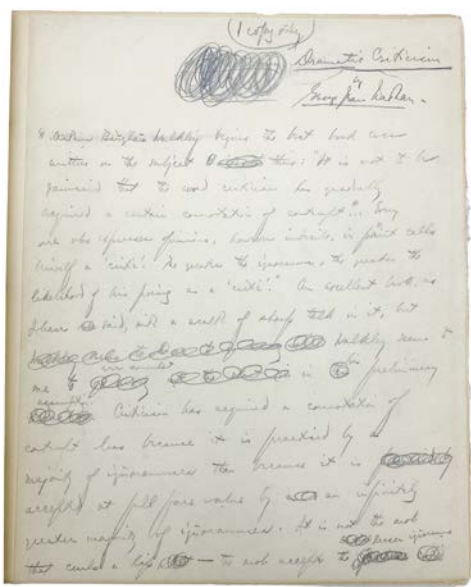 (1 copy only)
Dramatic Criticism
by
George Jean Nathan.
Arthur Bingham Walkley begins the best book ever
written on the subject thus: "It is not to be
gainsaid that the word criticism has gradually
acquired a certain connotation of contempt"... Every
one who expresses opinions, however imbecile, in print calls
himself a 'critic'. The greater the ignoramus, the greater the
likelihood of his posing as a 'critic'." An excellent book, as
I have said, with a wealth of sharp talk in it, but
Walkley seems to
me to err somewhat in his preliminary
assumption. Criticism has acquired a connotation of
contempt less because it is practised by a
majority of ignoramuses than because it is
accepted at full face value by an infinitely
greater majority of ignoramuses. It is not the mob
that curls a lip — the mob accepts the